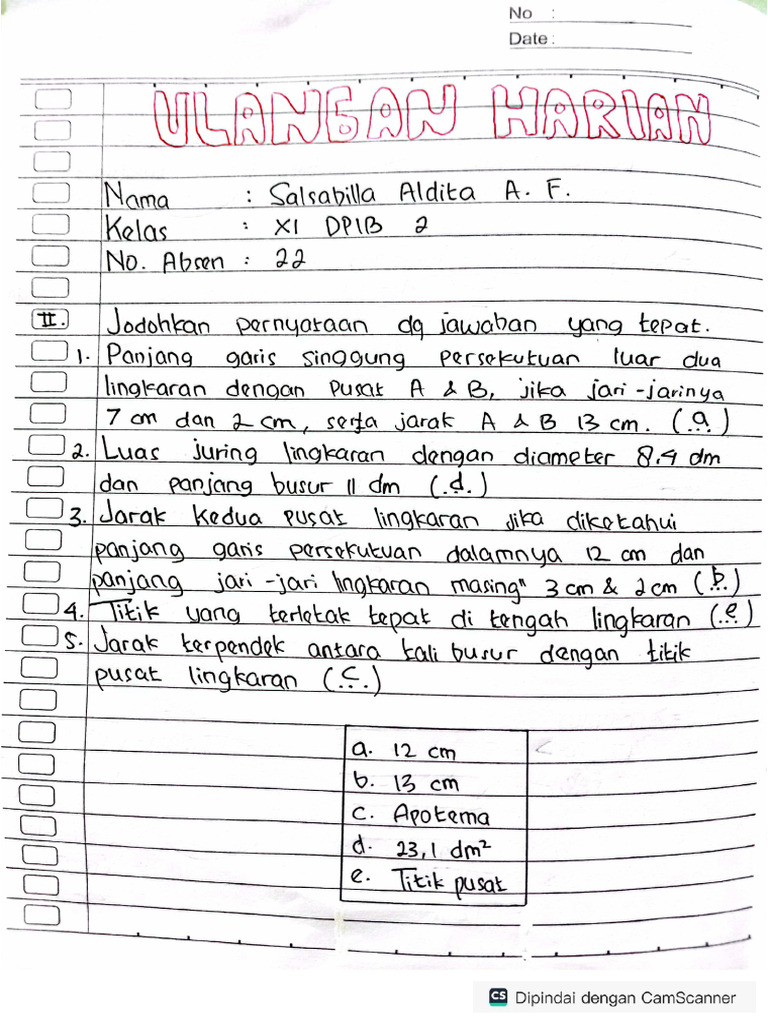 No :
Date :
ULANGAN HARIAN
Nama : Salsabilla Aldita A. F.
Kelas : XI DPIB 2
No. Absen : 22
II. Jodohkan pernyataan dg jawaban yang tepat.
1. Panjang garis singgung persekutuan luar dua
lingkaran dengan pusat A & B, jika jari-jarinya
7 cm dan 2 cm, serta jarak A & B 13 cm. (.a.)
2. Luas juring lingkaran dengan diameter 8.4 dm
dan panjang busur 11 dm (.d.)
3. Jarak kedua pusat lingkaran jika diketahui
panjang garis persekutuan dalamnya 12 cm dan
panjang jari-jari lingkaran masing" 3 cm & 2 cm (.b.)
4. Titik yang terletak tepat di tengah lingkaran (.e.)
5. Jarak terpendek antara tali busur dengan titik
pusat lingkaran (.c.)
a. 12 cm
b. 13 cm
c. Apotema
d. 23,1 dm²
e. Titik pusat
CS Dipindai dengan CamScanner